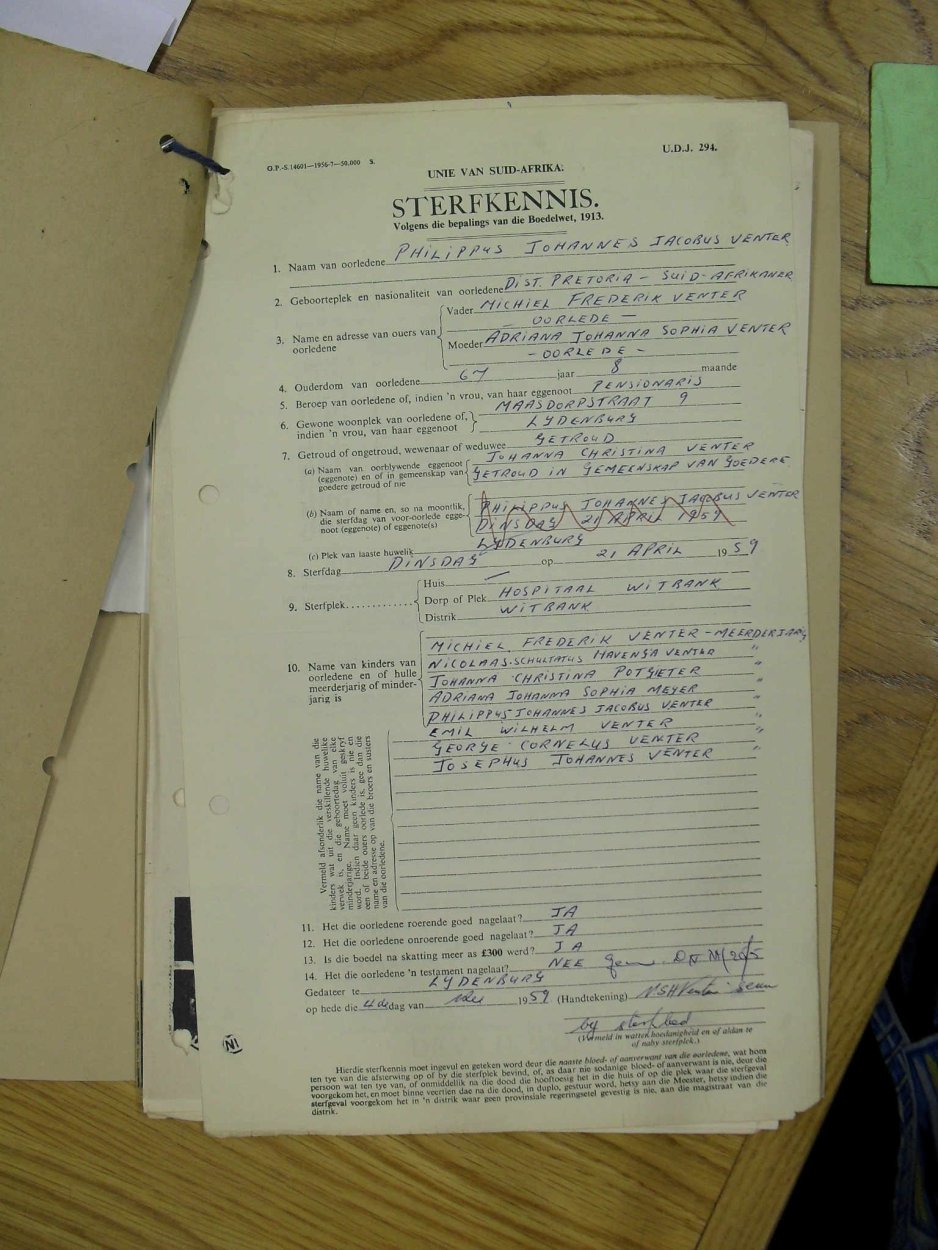 G.P.-S.14601—1956-7—50.000 S.
U.D.J. 294.
UNIE VAN SUID-AFRIKA.
STERFKENNIS.
Volgens die bepalings van die Boedelwet, 1913.
1. Naam van oorledene PHILIPPUS JOHANNES JACOBUS VENTER
2. Geboorteplek en nasionaliteit van oorledene DIST. PRETORIA – SUID-AFRIKANER
3. Name en adresse van ouers van oorledene
Vader MICHIEL FREDERIK VENTER
– OORLEDE –
Moeder ADRIANA JOHANNA SOPHIA VENTER
– OORLEDE –
4. Ouderdom van oorledene 67 jaar 8 maande
5. Beroep van oorledene of, indien 'n vrou, van haar eggenoot PENSIONARIS
6. Gewone woonplek van oorledene of, indien 'n vrou, van haar eggenoot
MAASDORPSTRAAT 9
LYDENBURG
7. Getroud of ongetroud, wewenaar of weduwee GETROUD
(a) Naam van oorblywende eggenoot (eggenote) en of in gemeenskap van goedere getroud of nie
JOHANNA CHRISTINA VENTER
GETROUD IN GEMEENSKAP VAN GOEDERE
(b) Naam of name en, so na moontlik, die sterfdag van voor-oorlede eggenoot (eggenote) of eggenote(s)
PHILIPPUS JOHANNES JACOBUS VENTER
DINSDAG 21 APRIL 1959
(c) Plek van laaste huwelik LYDENBURG
8. Sterfdag DINSDAG op 21 APRIL 1959
9. Sterfplek
Huis
Dorp of Plek HOSPITAAL WITBANK
Distrik WITBANK
10. Name van kinders van oorledene en of hulle meerderjarig of minderjarig is
MICHIEL FREDERIK VENTER – MEERDERJARIG
NICOLAAS SCHULTATUS HAVENGA VENTER "
JOHANNA CHRISTINA POTGIETER "
ADRIANA JOHANNA SOPHIA MEYER "
PHILIPPUS JOHANNES JACOBUS VENTER "
EMIL WILHELM VENTER "
GEORGE CORNELUS VENTER "
JOSEPHUS JOHANNES VENTER "
Vermeld afsonderlik die name van die
kinders wat uit die verskillende huwelike
verwek is, en die geboortedag van elke
minderjarige. Name moet voluit geskryf
word. Indien daar geen kinders is nie en
een of beide ouers oorlede is, gee dan die
name en adresse op van die broers en susters
van die oorledene.
11. Het die oorledene roerende goed nagelaat? JA
12. Het die oorledene onroerende goed nagelaat? JA
13. Is die boedel na skatting meer as £300 werd? JA
14. Het die oorledene 'n testament nagelaat? NEE
Gedateer te LYDENBURG
op hede die 4de dag van Mei 1959 (Handtekening) NSHVenter seun
by sterfbed
(Vermeld in watter hoedanigheid en of aldan te
of naby sterfplek.)
Hierdie sterfkennis moet ingevul en geteken word deur die naaste bloed- of aanverwant van die oorledene, wat hom
ten tye van die afsterwing op of by die sterfplek bevind, of, as daar nie sodanige bloed- of aanverwant is nie, deur die
persoon wat ten tye van, of onmiddellik na die dood die hooftoesig het in die huis of op die plek waar die sterfgeval
voorgekom het, en moet binne veertien dae na die dood, in duplo, gestuur word, hetsy aan die Meester, hetsy indien die
sterfgeval voorgekom het in 'n distrik waar geen provinsiale regeringsetel gevestig is nie, aan die magistraat van die
distrik.